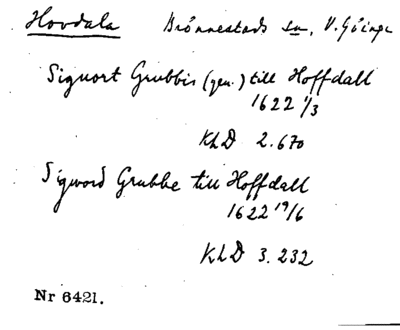 Hovdala Brönnestads sn, V. Göinge
Siguort Grubbis (gen.) till Hoffdall
1622 1/3
KLD 2.670
Sigword Grubbe till Hoffdall
1622 19/6
KLD 3.232
Nr 6421.